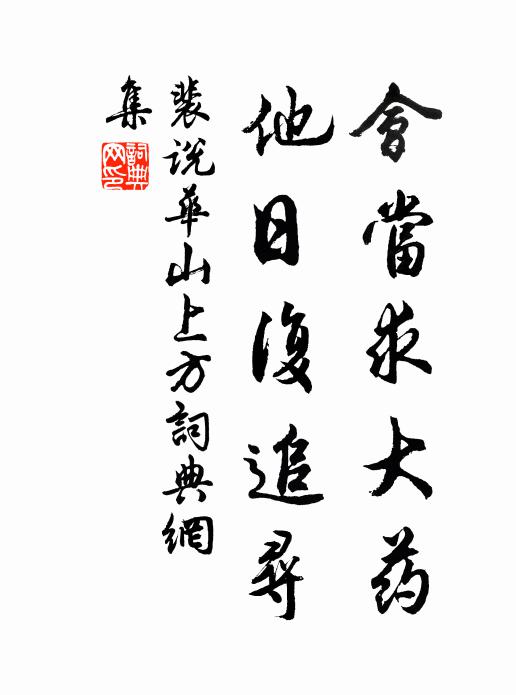 會當求大药
他日復追尋
裴説華山上方詞典網
集
詞典
网印